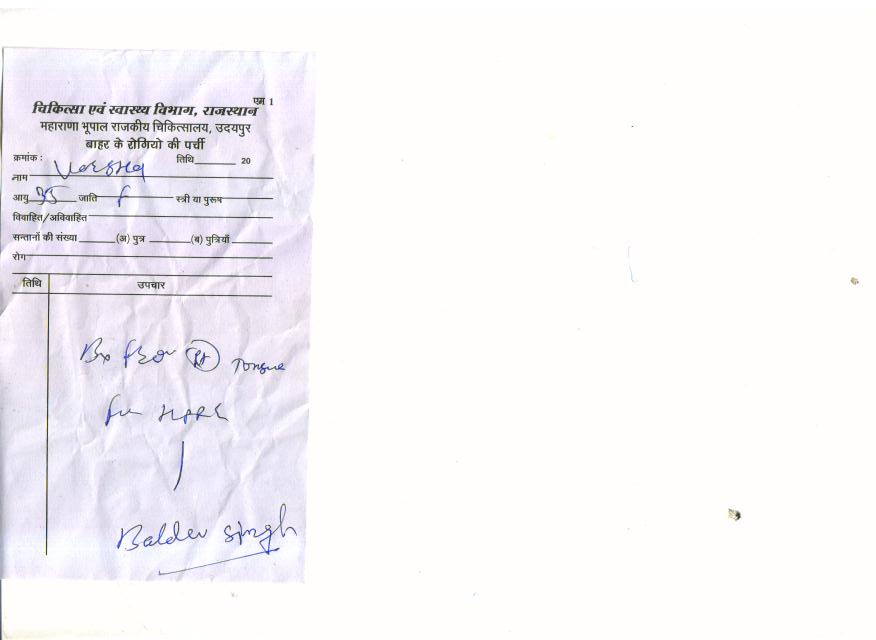 एम 1
चिकित्सा एवं स्वास्थ्य विभाग, राजस्थान
महाराणा भूपाल राजकीय चिकित्सालय, उदयपुर
बाहर के रोगियो की पर्ची
क्रमांक : तिथि 20
नाम
आयु 35 जाति F स्त्री या पुरूष
विवाहित/अविवाहित
सन्तानों की संख्या (अ) पुत्र (ब) पुत्रियाँ
रोग
तिथि उपचार
Bx from Rt Tongue
for HPR
Baldev Singh